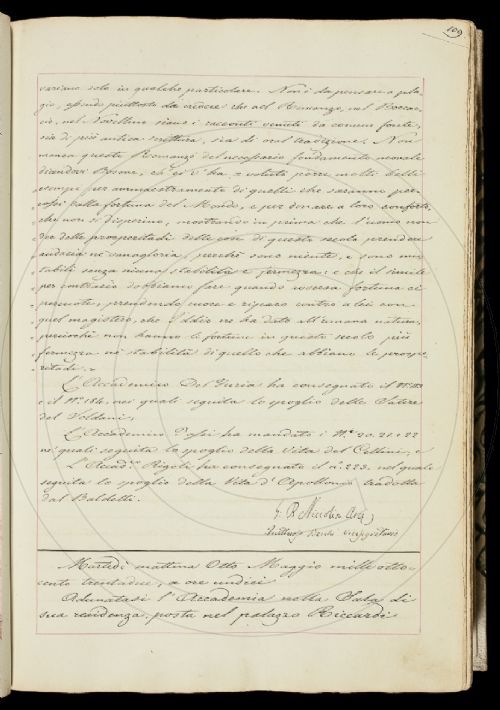 109
variano solo in qualche particolare. Non è da pensare a pla-
gio, essendo piuttosto da credere che nel Romanzo, nel Boccac-
cio, nel Novellino siano i racconti venuti da comun fonte,
sia di più antica scrittura, sia di oral tradizione. Non
manca questo Romanzo del necessario fondamento morale
dicendovi Bosone, ch'ei v'ha „ voluto porre molti belli
„ esempi per ammaestramento di quelli che saranno per-
„ cossi dalla fortuna del Mondo, e per donare a loro conforto,
„ che non si disperino, mostrando in prima che l'uomo non
„ dee delle prosperitadi delle cose di questo secolo prendere
„ audacia nè vanagloria, perchè sono niente, e sono mu-
„ tabili senza niuna stabilità e fermezza: e che il simile
„ per contrario dobbiamo fare quando avversa fortuna ci
„ percuote, prendendo cuore e riparo contro a lei con
„ quel magistero, che Iddio ne ha dato all'umana natura,
„ perciochè non hanno le fortune in questo secolo più
„ fermezza nè stabilità di quello che abbiano le prospe-
„ ritadi. „
L'Accademico Del Furia ha consegnato il N.° 183
e il N.° 184. nei quali seguita lo spoglio delle Satire
del Soldani.
L'Accademico ha mandato i N.i 20. 21. e 22
nei quali seguita lo spoglio della Vita del Cellini, e
L'Accad.co Rigoli ha consegnato il n.° 223. nel quale
seguita lo spoglio della Vita d'Apollonio tradotta
dal Baldelli.
G. B. Niccolini
Martedì mattina Otto Maggio mille otto-
cento trentadue, a ore undici
Adunatasi l'Accademia nella Sala di
sua residenza posta nel palazzo Riccardi